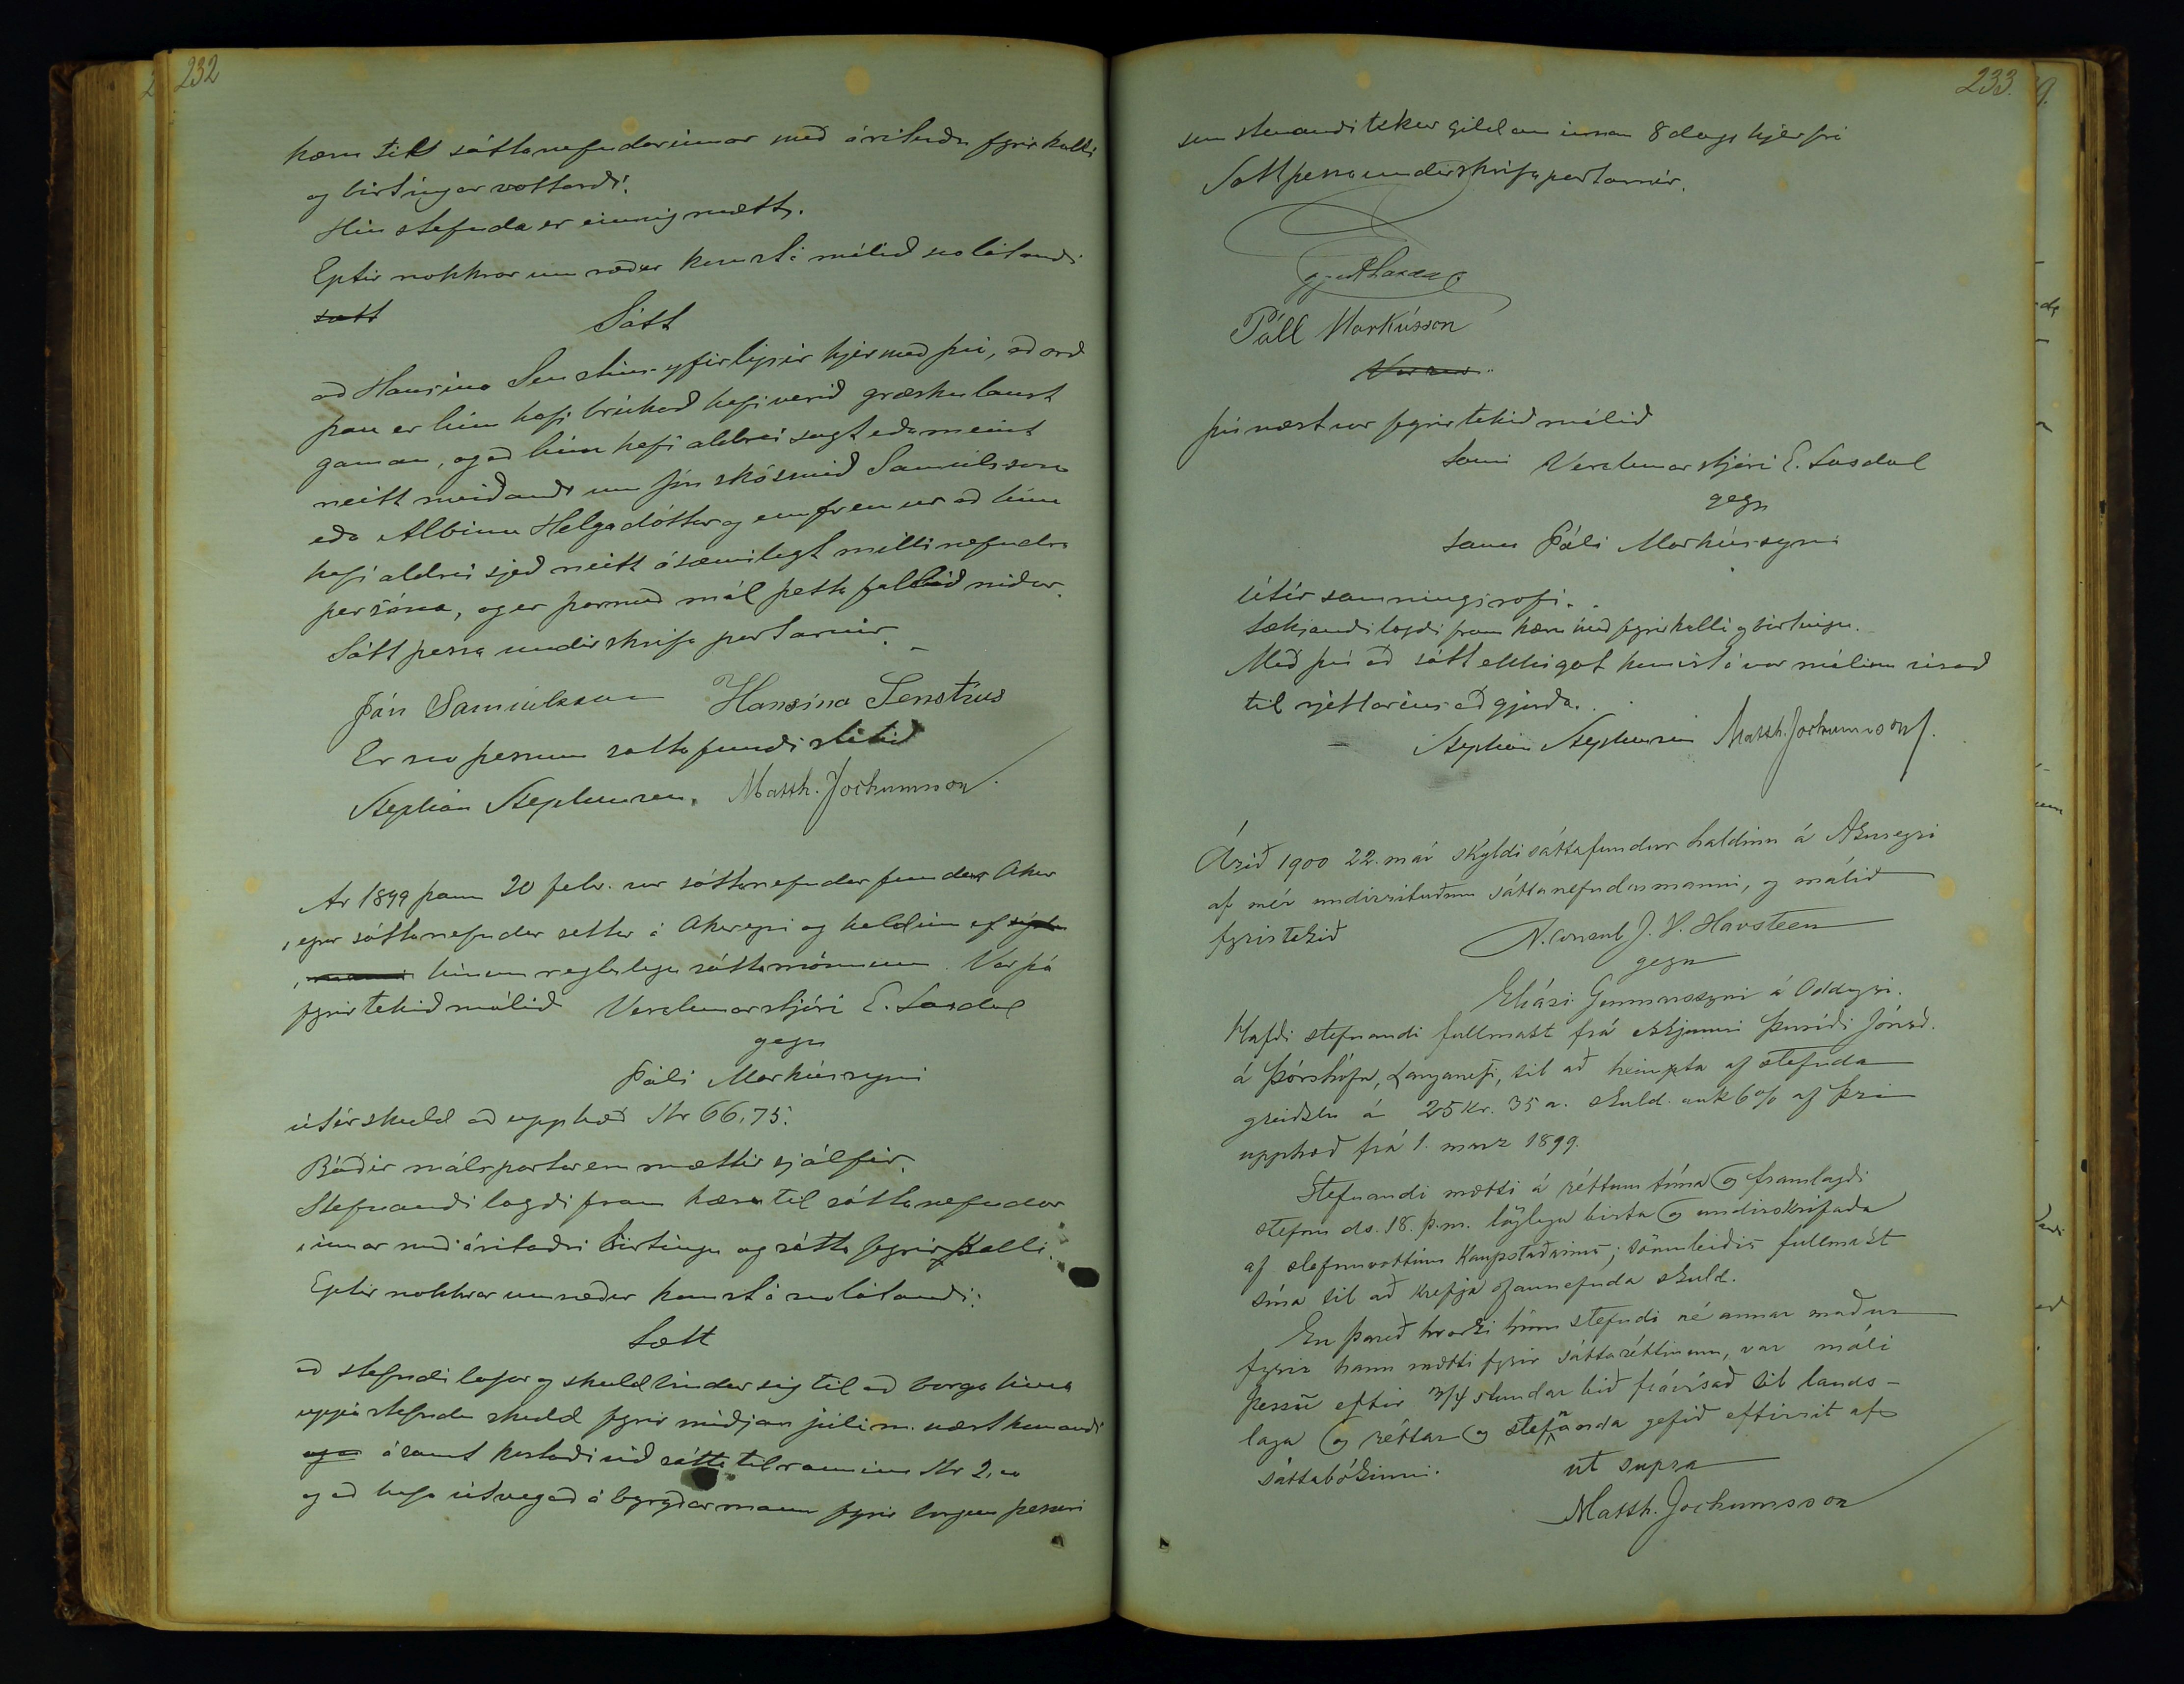 232
kæru till sáttanefndarinnar með árituðu fyrirkalli
og birtingarvottorði.
Hin stefnda er einnig mætt.
Eptir nokkrar umræður komst á málið svolátandi
satt
Sátt
að Hansína Senstius yfirlýsir hjermeð því, að orð
þau er hún hafi brúkað hafi verið græskulaust
gaman, og að hún hafi aldrei sagt eða meint
neitt meiðandi um Jón skósmið Samúelsson
eða Albínu Helgadóttur og ennfremur að hún
hafi aldrei sjeð neitt ósæmilegt milli nefndra
persóna, og er þarmeð mál þetta fallið niður.
Sátt þessa undirskrifa partarnir.
Jón Samúelsson Hansína Senstius
Er svo þessum sáttafundi slitið
Stephán Stephensen. Matth. Jochumsson.
Ár 1899 þann 20 febr. var sáttanefndarfundur Akur
eyrar sáttanefndar settur á Akureyri og haldinn af
hinum reglulegu sáttamönnum. Var þá
fyrirtekið málið Verzlunarstjóri E. Laxdal
gegn
Páli Markússyni
útúr skuld að upphæð Kr 66,75.
Báðir málspartar eru mættir sjálfir.
Stefnandi lagði fram kæru til sáttanefndar
innar með áritaðri birtingu og sátta fyrirkalli.
Eptir nokkrar umræður komst á svolátandi:
Sætt
að stefndi lofar og skuldbindur sig til að borga hina
uppástefndu skuld fyrir miðjan júlí m. næstkomandi
ásamt kostnaði við sáttatilraunina Kr 2,00
og að hafa útvegað ábyrgðarmann fyrir borgun þessari
233.
sem stefnandi tekur gildan innan 8 daga hjer frá
Sátt þessa undirskrifa partarnir.
Eggert Laxdal
Páll Markússon
því næst var fyrirtekið málið
Sami Verzlunarstjóri E. Laxdal
gegn
sama Páli Markússyni
útúr samningsrofi.
Sækjandi lagði fram kæru með fyrirkalli og birtingu.
Með því að sátt ekki gat komist á var málinu vísað
til rjettarins að gjörða.
Stephán Stephensen Matth. Jochumsson.
Árið 1900 22. maí skyldi sáttafundur haldinn á Akureyri
af mér undirrituðum sáttanefndarmanni, og málið
fyrirtekið N. Consul J. V. Havsteen
gegn
Elíasi Gunnarssyni á Oddeyri.
Hafði stefnandi fullmakt frá ekkjunni Þuríði Jónsd.
á Þórshöfn, Langanesi, til að heimpta af stefnda
greiðslu á 25 kr. 35 a. skuld auk 6% af þeirri
upphæð frá 1. marz 1899.
Stefnandi mætti á réttum tíma og framlagði
stefnu ds. 18. þ.m. löglega birta og undirskrifaða
af stefnuvottum Kaupstaðarins; sömuleiðis fullmakt
sína til að krefja ofannefnda skuld.
En þareð hvorki hinn stefndi né annar maður
fyrir hann mætti fyrir sáttaréttinum, var máli
þessu eftir 3/4 stundar bið frávísað til lands-
laga og réttar og stefnanda gefið eftirrit af
sáttabókinni. ut supra
Matth. Jochumsson